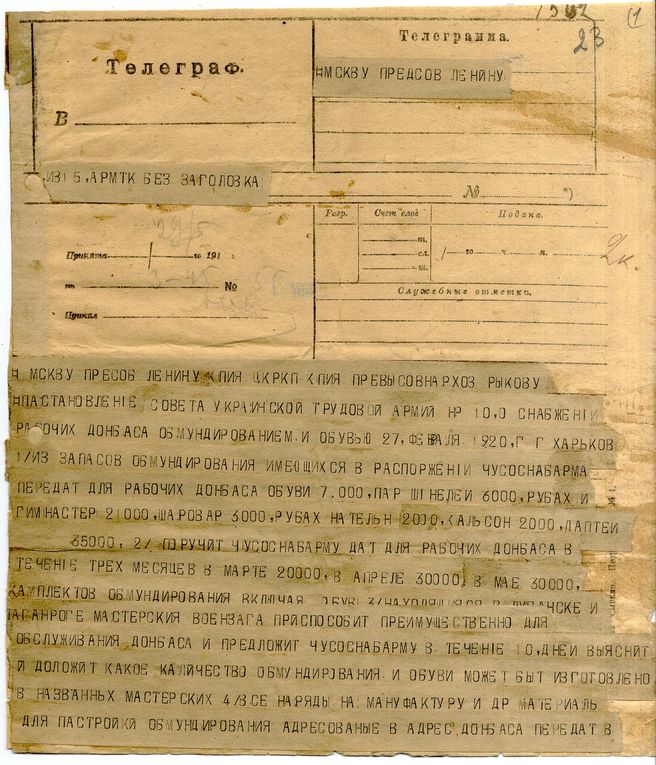 1
23
Телеграф.
Телеграмма.
МСКВУ ПРЕДСОВ ЛЕНИНУ
В
ИЗ 5,АРМТК БЕЗ ЗАГОЛОВКА
№
Разр. Счет слов Подана.
т.
сл.
ш.
го ч. м.
2к.
Принята го 191
от №
Принял
Служебные отметки.
МСКВУ ПРЕСОВ ЛЕНИНУ КПИЯ ЦКРКП КПИЯ ПРЕВЫСОВНАРХОЗ РЫКОВУ
ПАСТАНОВЛЕНІЕ СОВЕТА УКРАИНСКОЙ ТРУДОВОЙ АРМИЙ НР 10,О СНАБЖЕНІИ
РАБОЧИХ ДОНБАСА ОБМУНДИРОВАНИЕМ И ОБУВЬЮ 27, ФЕВРАЛЯ 1920,Г Г ХАРЬКОВ
1/ИЗ ЗАПАСОВ ОБМУНДИРОВАНИЯ ИМЕЮЩИХСЯ В РАСПОРЖЕНІЙ ЧУСОСНАБАРМА
ПЕРЕДАТ ДЛЯ РАБОЧИХ ДОНБАСА ОБУВИ 7.000, ПАР ШІНЕЛЕЙ 6000, РУБАХ И
ГИМНАСТЕР 21000,ШАРОВАР 3000, РУБАХ НАТЕЛЬН 2000, КАЛЬСОН 2000, ЛАПТЕЙ
35000, 2/ ПОРУЧИТ ЧУСОСНАБАРМУ ДАТ ДЛЯ РАБОЧИХ ДОНБАСА В
ТЕЧЕНІЕ ТРЕХ МЕСЯЦЕВ В МАРТЕ 20000, В АПРЕЛЕ 30000, В МАЕ 30000,
КАМПЛЕКТОВ ОБМУНДИРОВАНИЯ ВКЛЮЧАЯ ОБУВЬ 3/НАХОДЯЩИЯСЯ В ЛУГАНСКЕ И
ТАГАНРОГЕ МАСТЕРСКИЯ ВОЕНЗАГА ПРИСПОСОБИТ ПРЕИМУЩЕСТВЕННО ДЛЯ
ОБСЛУЖИВАНИЯ ДОНБАСА И ПРЕДЛОЖИТ ЧУСОСНАБАРМУ В ТЕЧЕНІЕ 10, ДНЕЙ ВЫЯСНИТ
И ДОЛОЖИТ КАКОЕ КАЛИЧЕСТВО ОБМУНДИРОВАНИЯ И ОБУВИ МОЖЕТ БЫТ ИЗГОТОВЛЕНО
В НАЗВАННЫХ МАСТЕРСКИХ 4/ВСЕ НАРЯДЫ НА МАНУФАКТУРУ И ДР МАТЕРИАЛЬ
ДЛЯ ПАСТРОЙКИ ОБМУНДИРОВАНИЯ АДРЕСОВАНЫЕ В АДРЕС ДОНБАСА ПЕРЕДАТ В